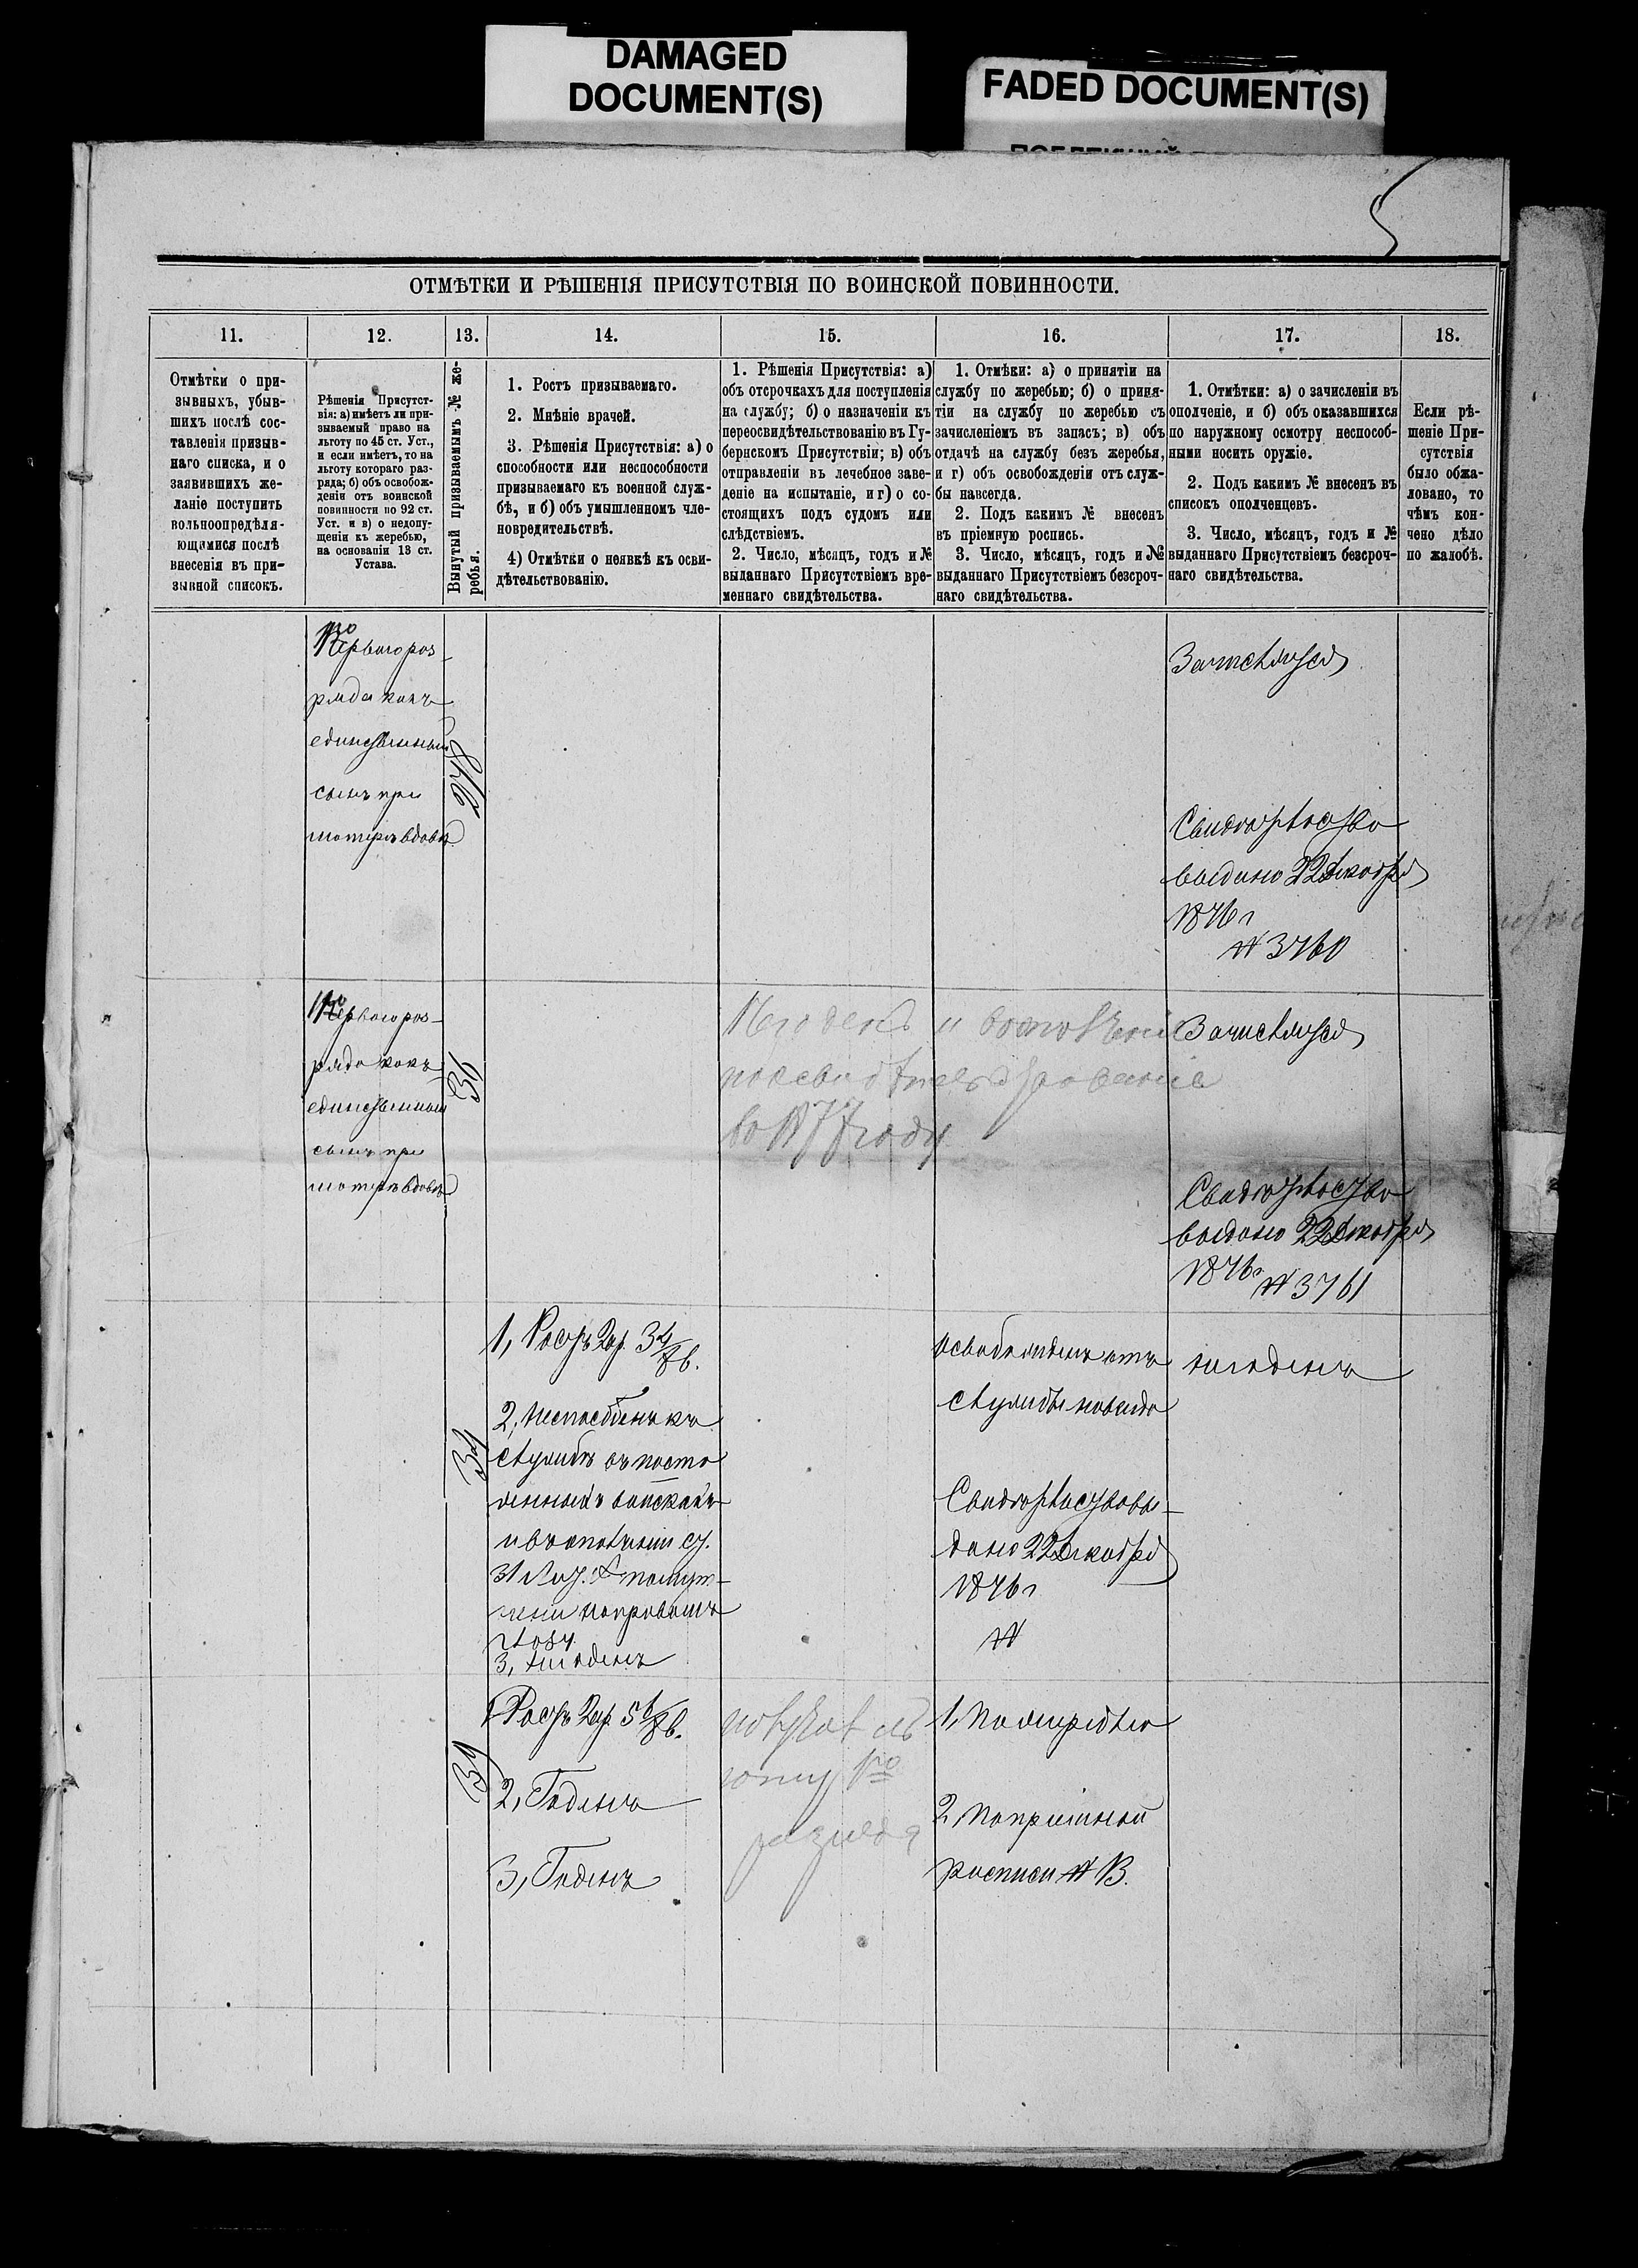 DAMAGED
DOCUMENT(S)
FADED DOCUMENT(S)
5
ОТМѢТКИ И РѢШЕНІЯ ПРИСУТСТВІЯ ПО ВОИНСКОЙ ПОВИННОСТИ.
11.
Отмѣтки о при-
зывныхъ, убыв-
шихъ послѣ сос-
тавленія призыв-
наго списка, и о
заявившихъ же-
ланіе поступить
вольноопредѣля-
ющимися послѣ
внесенія въ при-
зывной списокъ.
12.
Рѣшенія Присутст-
вія: а) имѣетъ ли при-
зываемый право на
льготу по 45 ст. Уст.,
и если имѣетъ, то на
льготу котораго раз-
ряда; б) объ освобож-
деніи отъ воинской
повинности по 92 ст.
Уст. и в) о недопу-
щеніи къ жеребью,
на основаніи 13 ст.
Устава.
13.
Вынутый призываемымъ № же-
ребья.
14.
1. Ростъ призываемаго.
2. Мнѣніе врачей.
3. Рѣшенія Присутствія: а) о
способности или неспособности
призываемаго къ военной служ-
бѣ, и б) объ умышленномъ чле-
новредительствѣ.
4) Отмѣтки о неявкѣ къ осви-
дѣтельствованію.
15.
1. Рѣшенія Присутствія: а)
объ отсрочкахъ для поступленія
на службу; б) о назначеніи къ
переосвидѣтельствованію въ Гу-
бернскомъ Присутствіи; в) объ
отправленіи въ лечебное заве-
деніе на испытаніе, и г) о со-
стоящихъ подъ судомъ или
слѣдствіемъ.
2. Число, мѣсяцъ, годъ и №
выданнаго Присутствіемъ вре-
меннаго свидѣтельства.
16.
1. Отмѣки: а) о принятіи на
службу по жеребью; б) о приня-
тіи на службу по жеребью съ
зачисленіемъ въ запасъ; в) объ
отдачѣ на службу безъ жеребья,
и г) объ освобожденіи отъ служ-
бы навсегда.
2. Подъ какимъ № внесенъ
въ пріемную роспись.
3. Число, мѣсяцъ, годъ и №
выданнаго Присутствіемъ безсроч-
наго свидѣтельства.
17.
1. Отмѣтки: а) о зачисленіи въ
ополченіе, и б) объ оказавшихся
по наружному осмотру неспособ-
ными носить оружіе.
2. Подъ какимъ № внесенъ въ
списокъ ополченцевъ.
3. Число, мѣсяцъ, годъ и №
выданнаго Присутствіемъ безсроч-
наго свидѣтельства.
18.
Если рѣ-
шеніе При-
сутствія
было обжа-
ловано, то
чѣмъ кон-
чено дѣло
по жалобѣ.
Перваго раз-
ряда какъ
единственный
сынъ при
матери вдовѣ
278
Зачислился
Свидѣтельство
выдано 22 Декабря
1876 г
№ 3760
Перваго раз-
ряда какъ
единственный
сынъ при
матери вдовѣ
36
году
Зачислился
Свидѣтельство
выдано 22 Декабря
1876 г № 3761
34
1, Ростъ 2 ар. 3 4/8 в.
2, Неспособенъ къ
службѣ въ посто
янныхъ войскахъ
и въ ополченіи ст.
31 Лит.
правомъ
глазу
3, Негоденъ
Освобожденъ отъ
службы навсегда
Свидѣтельство вы-
дано 22 Декабря
1876 г
№
негоденъ
39
1, Ростъ 2 ар. 5 6/8 в.
2, Годенъ
3, Годенъ
1го
разряда
1,
2, По пріемной
росписи № 13.